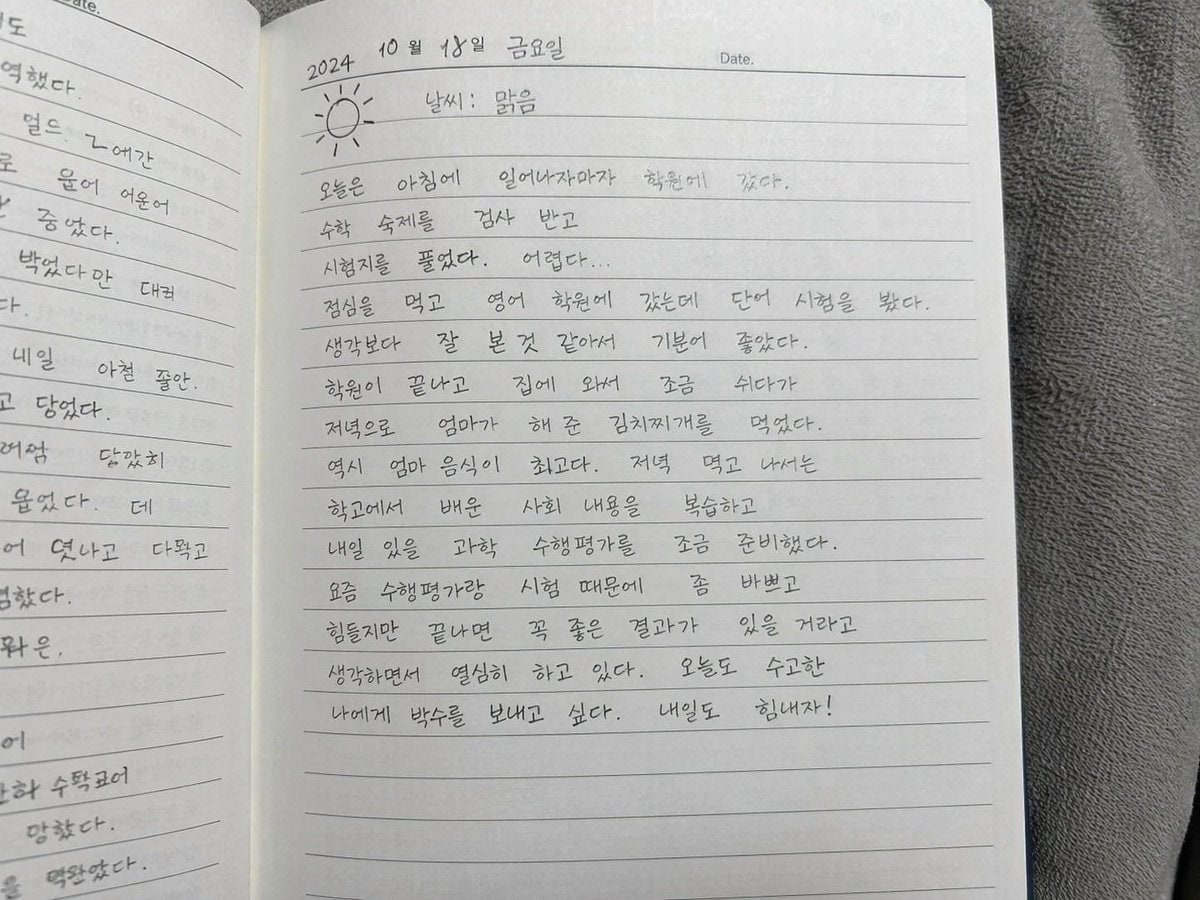 ate.
역했다.
에간
로 어운어
중었다.
박었다만
다.
내일
고 당었다.
당았히
데
어 나고
했다.
은.
어
망했다.
2024 10월 18일 금요일 Date.
날씨: 맑음
오늘은 아침에 일어나자마자 학원에 갔다.
수학 숙제를 검사 반고
시험지를 풀었다. 어렵다...
점심을 먹고 영어 학원에 갔는데 단어 시험을 봤다.
생각보다 잘 본 것 같아서 기분어 좋았다.
학원이 끝나고 집에 와서 조금 쉬다가
저녁으로 엄마가 해 준 김치찌개를 먹었다.
역시 엄마 음식이 최고다. 저녁 먹고 나서는
학고에서 배운 사회 내용을 복습하고
내일 있을 과학 수행평가를 조금 준비했다.
요즘 수행평가랑 시험 때문에 좀 바쁘고
힘들지만 끝나면 꼭 좋은 결과가 있을 거라고
생각하면서 열심히 하고 있다. 오늘도 수고한
나에게 박수를 보내고 싶다. 내일도 힘내자!